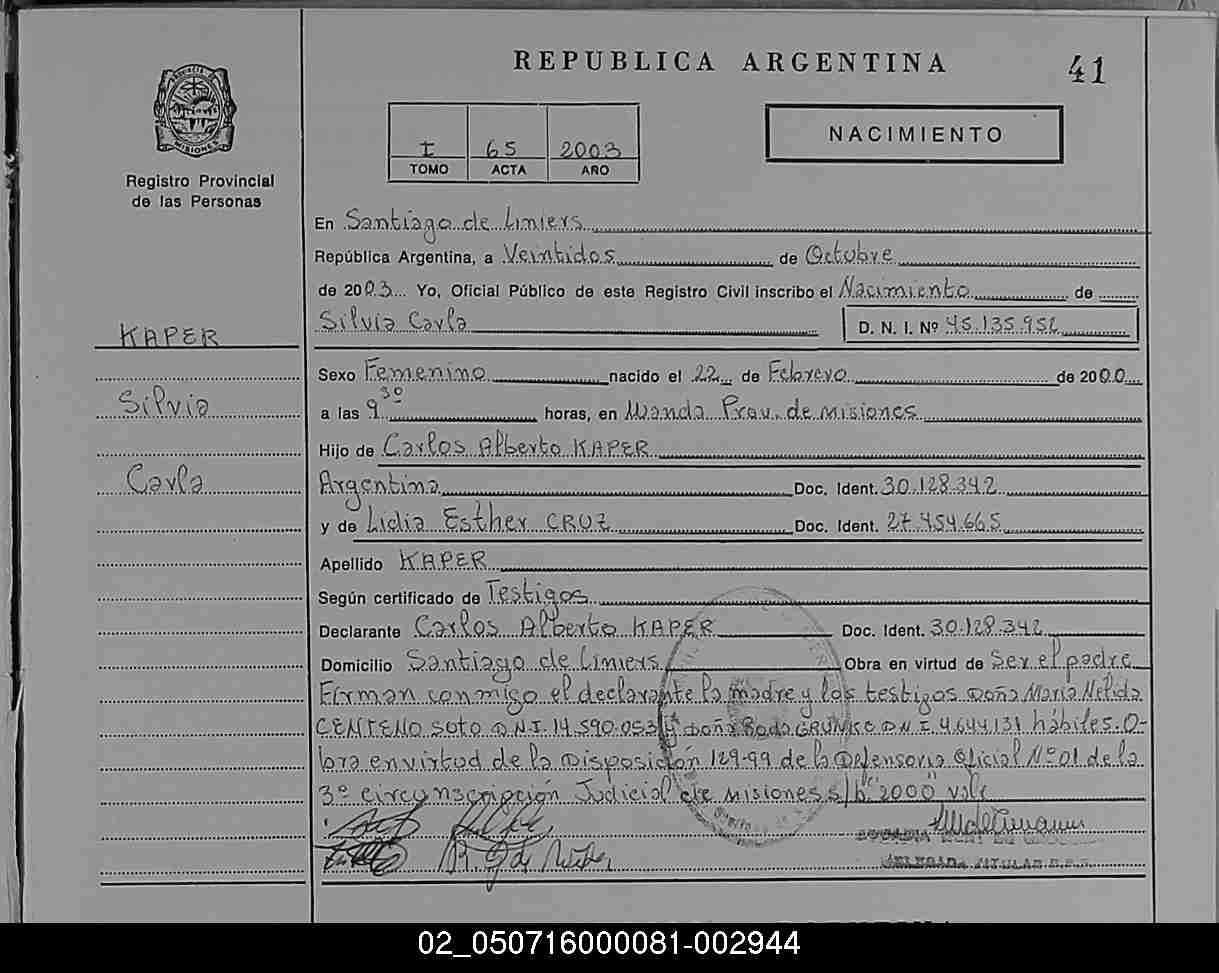 REPUBLICA ARGENTINA
41
MISIONES
Registro Provincial
de las Personas
I 65 2003
TOMO ACTA AÑO
NACIMIENTO
En Santiago de Liniers
República Argentina, a Veintidos de Octubre
de 2003 Yo, Oficial Público de este Registro Civil inscribo el Nacimiento de
Silvia Carla D. N. I. Nº 45.135.952
KAPER
Sexo Femenino nacido el 22 de Febrero de 2000
Silvia
a las 9 30 horas, en Wanda Prov. de Misiones
Hijo de Carlos Alberto KAPER
Carla
Argentina Doc. Ident. 30.128.342
y de Lidia Esther CRUZ Doc. Ident. 27.454.665
Apellido KAPER
Según certificado de Testigos
Declarante Carlos Alberto KAPER Doc. Ident. 30.128.342
Domicilio Santiago de Liniers Obra en virtud de Ser el padre
Firman conmigo el declarante la madre y los testigos Doña Maria Nelida
CENTENO SOTO D.N.I. 14.590.053 y Doña D N I. 4.644.131 hábiles. O-
bra en virtud de la Disposición 129-99 de la Defensoria Oficial Nº 01 de la
3º circunscripción Judicial de Misiones s/b "2000" vale
TITULAR
02_050716000081-002944